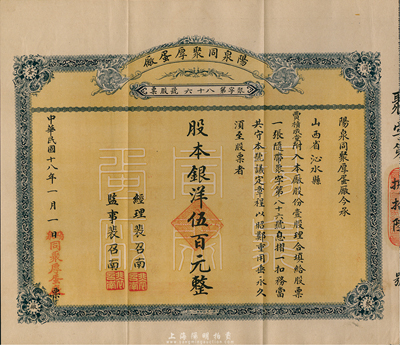 陽泉同聚厚蛋廠
聚字第八十六號股票
陽泉同聚厚蛋廠今承
山西省沁水縣
附入本廠股份壹股理合填給股票
一張隨帶聚字第八十六號息摺一扣務當
共守本號議定章程以昭鄭重用垂永久
須至股票者
股本銀洋伍百元整
經理裴召南
監事裴召南
中華民國十八年一月一日
同聚厚蛋票
聚字第
捌拾陸
號
上海陽明拍賣